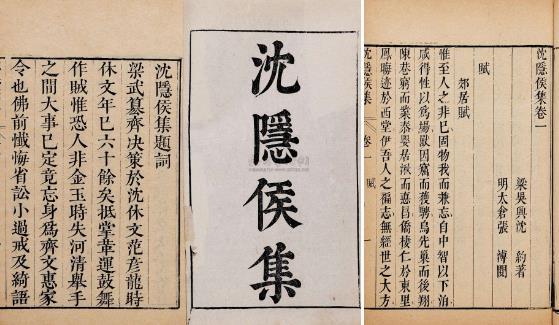 沈隱侯集題詞
梁武篡齊決策於沈休文范彥龍時
休文年已六十餘矣抵掌革運鼓舞
作賊惟恐人非金玉時失河清舉手
之間大事已定竟忘身為齊文惠家
令也佛前懺悔省訟小過戒及綺語
沈隱侯集
沈隱侯集卷一
梁吳興沈 約著
明太倉張 溥閱
賦
郊居賦
惟至人之非己固物我而兼忘自中智以下洎
咸得性以為場獸因窟而獲騁鳥先巢而後翔
陳巷窮而業泰嬰居湫而德昌僑棲仁於東里
鳳晦迹於西堂伊吾人之褊志無經世之大方
沈隱侯集 卷一 賦